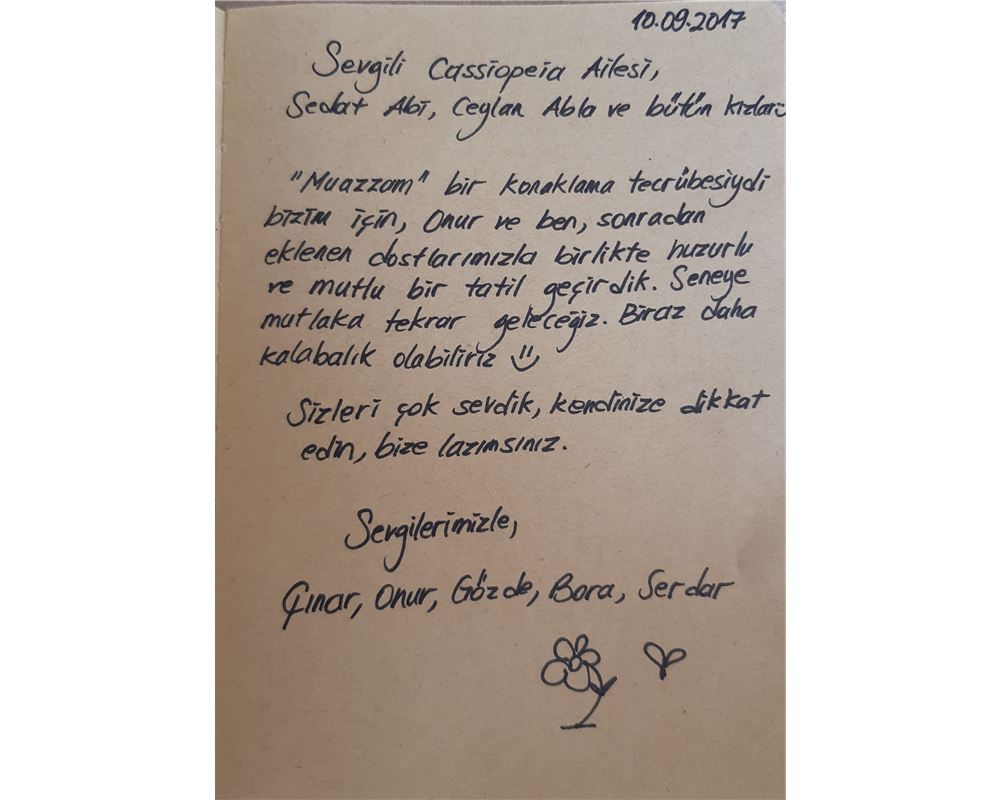 10.09.2017
Sevgili Cassiopeia Ailesi,
Sedat Abi, Ceylan Abla ve bütün kızları
"Muazzam" bir konaklama tecrübesiydi
bizim için, Onur ve ben, sonradan
eklenen dostlarımızla birlikte huzurlu
ve mutlu bir tatil geçirdik. Seneye
mutlaka tekrar geleceğiz. Biraz daha
kalabalık olabiliriz
Sizleri çok sevdik, kendinize dikkat
edin, bize lazımsınız.
Sevgilerimizle,
Çınar, Onur, Gözde, Bora, Serdar